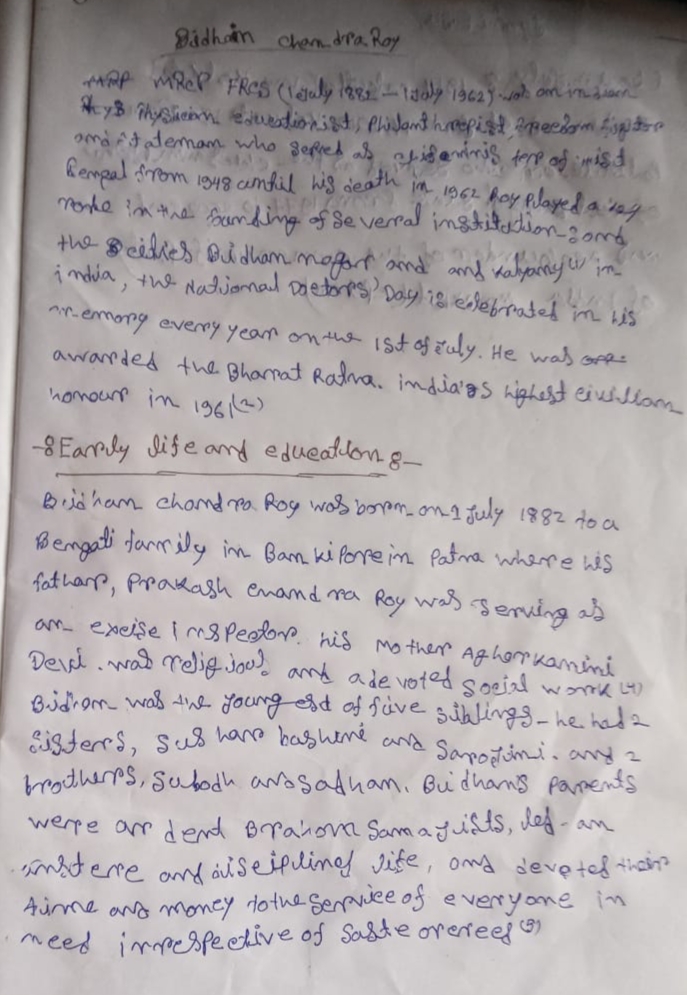 Bidhain chandra Roy
MRCP FRCS (1 July 1882 – 1 July 1962) was an indian
Physheian educationist, Philanthropist, Freedom fighter
and statemam who served as of
Bengal from 1948 until his death in 1962 Roy Played a key
in the founding of Several institution and
the eeities Bidham nagar and and Kalyany(1) in
india, the National Doctors' Day is celebrated in his
memory every year on the 1st of July. He was
awarded the Bharrat Ratna. india's highest civillian
honour in 1961(2)
-8 Earrly life and education 8-
Bidham chandra Roy was born on 1 July 1882 to a
Bengali farrily in Bankipore in Patna where his
fatharr, Prakash chandra Roy was serving as
an exeise inspector. his Mother Aghorrkamini
Devi. was religious. and a devoted social work (4)
Bidham was the young esd of five siblings - he had 2
sisterrs, Sus harr bashini and Sarojimi. and 2
brotherrs, Subodh and Sadhan. Bidhans parents
werre arr dent Brahom Samajists, led - an
and diseiplined life, and devoted their
time and money to the serrvice of everyone in
need irrrespective of Saste orereed (3)